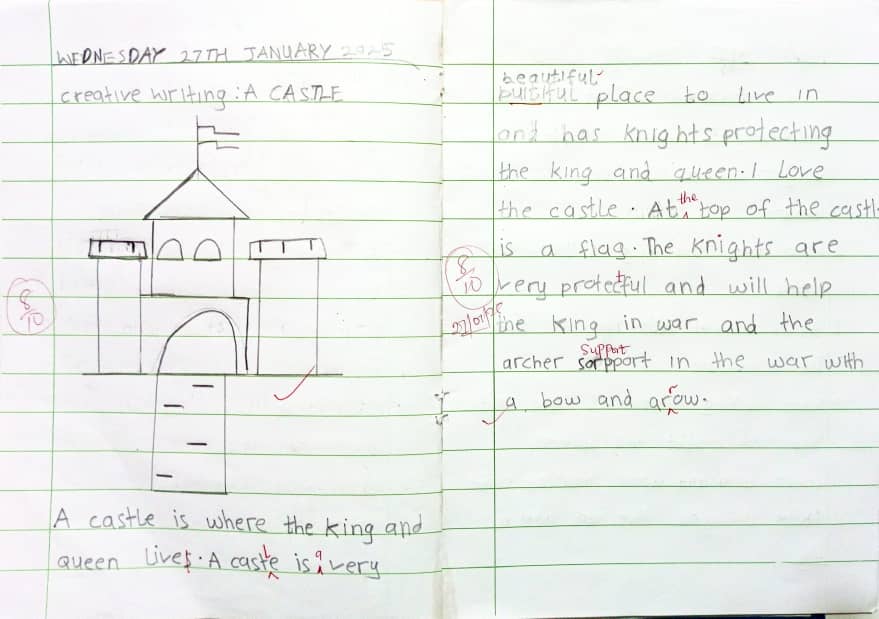 WEDNESDAY 27TH JANUARY 2025
creative writing : A CASTLE
8/10
A castle is where the king and
queen lives. A caste is very
l a
beautiful
place to live in
and has knights protecting
the king and queen. I Love
the castle. At the top of the castl
is a flag. The knights are
8/10
very protectful and will help
the king in war and the
support
archer sorpport in the war with
a bow and arow.
r